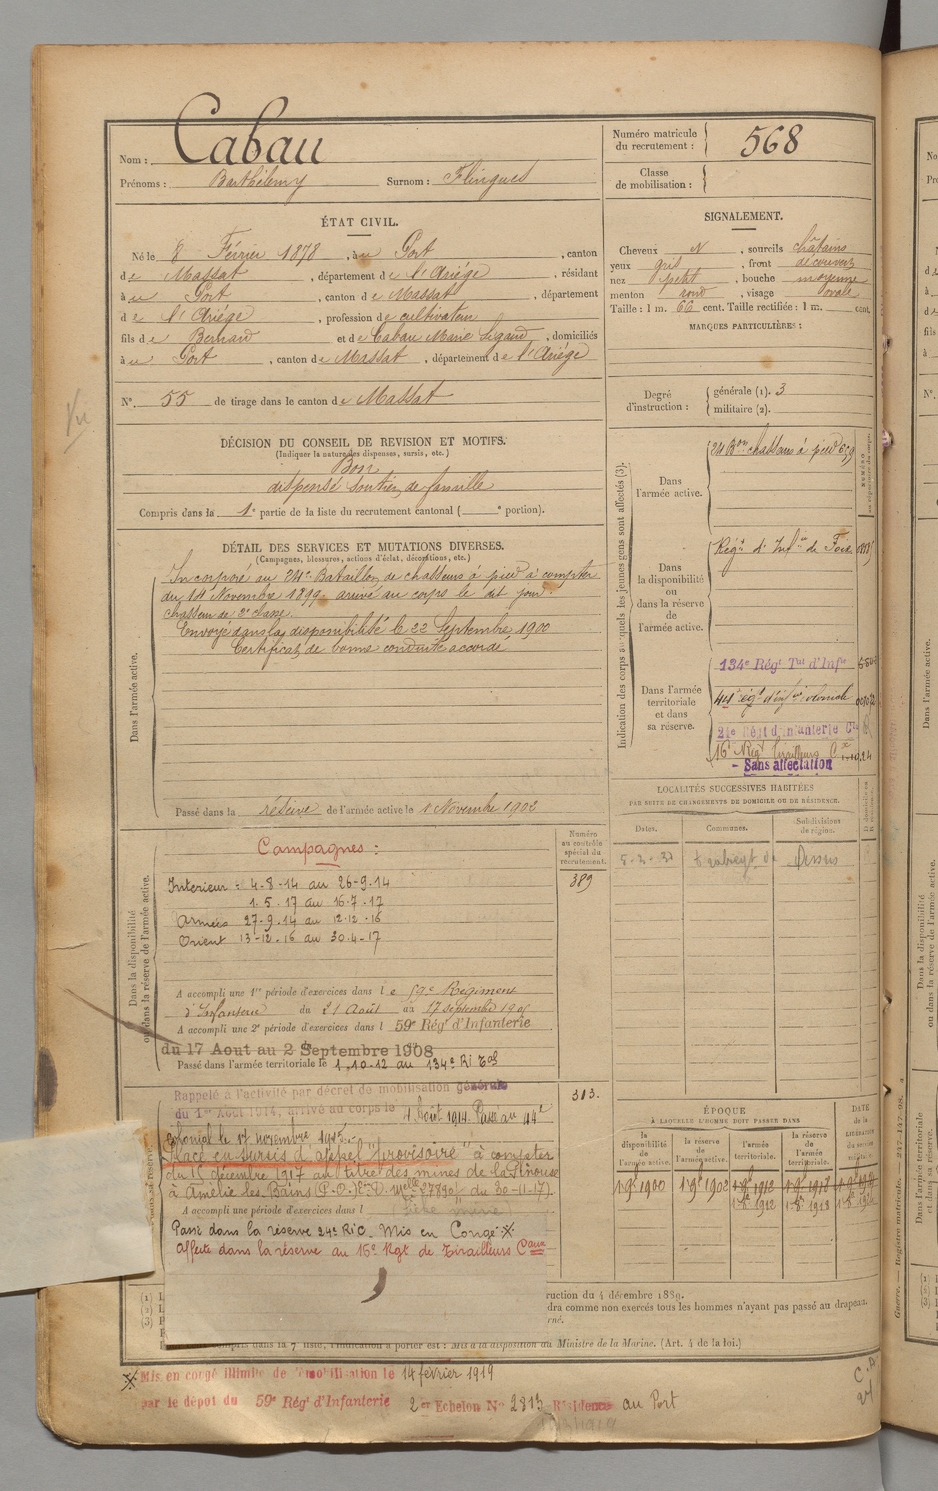 Nom : Cabau
Prénoms : Barthélemy Surnom : Flingues
Numéro matricule du recrutement : 568
Classe de mobilisation :
ÉTAT CIVIL.
Né le 8 Février 1878, à Port, canton
de Massat, département de l'Ariége, résidant
à Port, canton de Massat, département
de l'Ariége, profession de cultivateur
fils de Bernard et de Cabau Marie, domiciliés
à Port, canton de Massat, département de l'Ariége
N° 55 de tirage dans le canton de Massat
SIGNALEMENT.
Cheveux N, sourcils châtains
yeux gris, front découvert
nez petit, bouche moyenne
menton rond, visage ovale
Taille : 1 m. 66 cent. Taille rectifiée : 1 m. cent.
MARQUES PARTICULIÈRES :
Degré d'instruction : générale (1). 3
militaire (2).
DÉCISION DU CONSEIL DE REVISION ET MOTIFS.
(Indiquer la nature des dispenses, sursis, etc.)
Bon
dispensé soutien de famille
Compris dans la 1e partie de la liste du recrutement cantonal ( e portion).
DÉTAIL DES SERVICES ET MUTATIONS DIVERSES.
(Campagnes, blessures, actions d'éclat, décorations, etc.)
Dans l'armée active.
Incorporé au 24e Bataillon de chasseurs à pied à compter
du 14 Novembre 1899, arrivé au corps le dit jour
chasseur de 2e classe.
Envoyé dans la disponibilité le 22 Septembre 1900
Certificat de bonne conduite accordé
Passé dans la réserve de l'armée active le 1 Novembre 1902
Indication des corps auxquels les jeunes gens sont affectés (3).
Dans l'armée active.
24 Bon chasseurs à pied
Dans la disponibilité ou dans la réserve de l'armée active.
Régt d'Infie de Foix
Dans l'armée territoriale et dans sa réserve.
134e Régt Tal d'Infie
44e régt d'infie coloniale
24e Régt d'Infanterie Cle
16e Régt tirailleurs
Sans affectation
LOCALITÉS SUCCESSIVES HABITÉES
PAR SUITE DE CHANGEMENTS DE DOMICILE OU DE RÉSIDENCE.
Dates. Communes. Subdivisions de région.
Dans la disponibilité ou dans la réserve de l'armée active.
Numéro au contrôle spécial du recrutement.
389
Campagnes :
Intérieur : 4-8-14 au 26-9-14
1.5.17 au 16-7-17
Armées 27-9-14 au 12-12-16
Orient 13-12-16 au 30-4-17
A accompli une 1re période d'exercices dans le 59e Régiment
d'Infanterie du 21 Août au 17 septembre
A accompli une 2e période d'exercices dans l 59e Régt d'Infanterie
du 17 Aout au 2 Septembre 1908
Passé dans l'armée territoriale le 1-10-12 au 134e Ri
313.
Rappelé à l'activité par décret de mobilisation générale
du 1er Août 1914, arrivé au corps le 4 Août 1914. Passé au 44e
Colonial le 17 novembre
Placé en sursis d'appel "provisoire" à compter
du 15 décembre 1917 au titre des mines de la Pinouse
à Amélie les Bains
A accompli une période d'exercices dans l
Passé dans la réserve 24e RIC. Mis en Congé
Affecté dans la réserve au 16e Rgt de Tirailleurs Caux
ÉPOQUE
À LAQUELLE L'HOMME DOIT PASSER DANS
la disponibilité de l'armée active. la réserve de l'armée active. l'armée territoriale. la réserve de l'armée territoriale. DATE de la LIBÉRATION du service militaire.
1-9bre 1900 1-9bre 1902 1-9bre 1912 1-9bre 1918
1-8bre 1912 1-8bre 1918
ruction du 4 décembre 1889.
dra comme non exercés tous les hommes n'ayant pas passé au drapeau.
l'indication à porter est : Mis à la disposition du Ministre de la Marine. (Art. 4 de la loi.)
Mis en congé illimité de démobilisation le 14 février 1919
par le dépot du 59e Régt d'Infanterie 2er Echelon No 2813 Résidence au Port